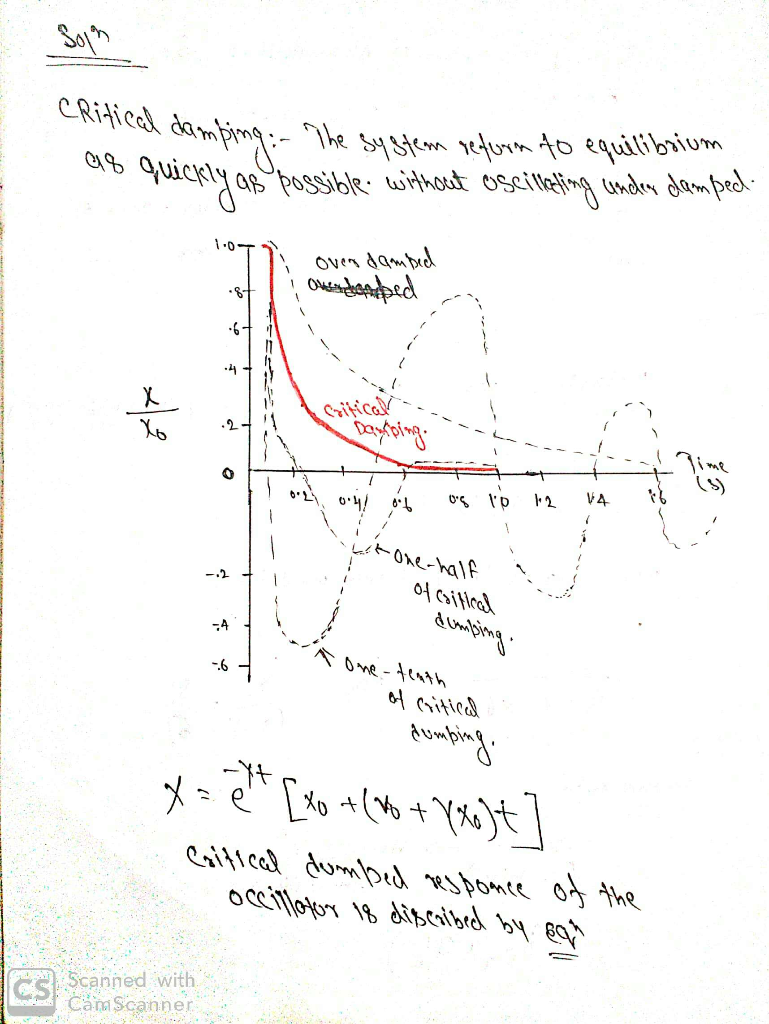 Solⁿ
CRitical damping:- The system return to equilibrium
as quickly as possible. without oscillating under damped.
1.0
over damped
.8
.6
.4
X
X₀
Critical
Damping.
.2
Time
(s)
0
0.2
0.4
0.6
0.8
1.0
1.2
1.4
1.6
One-half
of critical
dumping.
-.2
-.4
-.6
One-tenth
of critical
dumping.
X = e^-γt [x₀ + (v₀ + γx₀)t]
Critical dumped responce of the
occillator is discribed by eqⁿ
CS
Scanned with
CamScanner